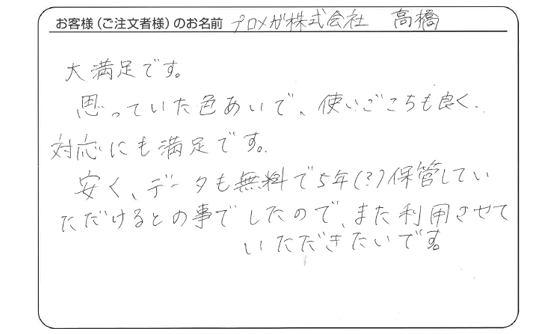 お客様（ご注文者様）のお名前 プロメガ株式会社 高橋
大満足です。
思っていた色あいで、使いごこちも良く、
対応にも満足です。
安く、データも無料で5年(?)保管してい
ただけるとの事でしたので、また利用させて
いただきたいです。